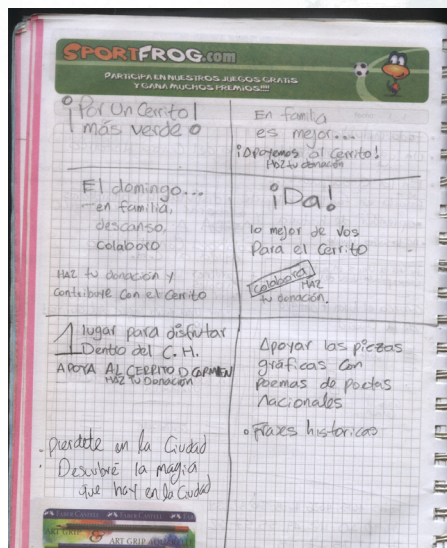 SPORTFROG.com
PARTICIPA EN NUESTROS JUEGOS GRATIS
Y GANA MUCHOS PREMIOS!!!!
¡Por un Cerrito!
más verde
En familia
es mejor...
¡Apoyemos al Cerrito!
Haz tu donación
El domingo...
en familia,
descanso,
colaboro
Haz tu donación y
contribuye con el Cerrito
¡Da!
lo mejor de vos
Para el Cerrito
Colabora
HAZ
tu donación.
1 lugar para disfrutar
Dentro del C. H.
APOYA AL CERRITO D CARMEN
Haz tu Donación
Apoyar las piezas
gráficas con
poemas de poetas
nacionales
• Frases historicas
- pierdete en la Ciudad
• Descubre la magia
que hay en la Ciudad
FABER-CASTELL
FABER-CASTELL
ART GRIP
ART GRIP AQUARELLE